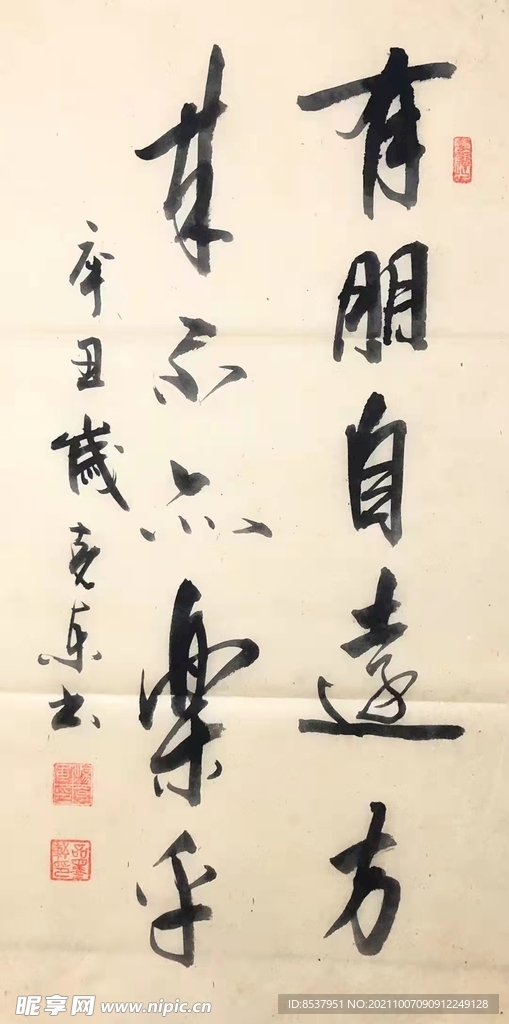 有朋自遠方
来不亦樂乎
辛丑歲克东书
昵享网 www.nipic.cn
ID:8537951 NO:20211007090912249128